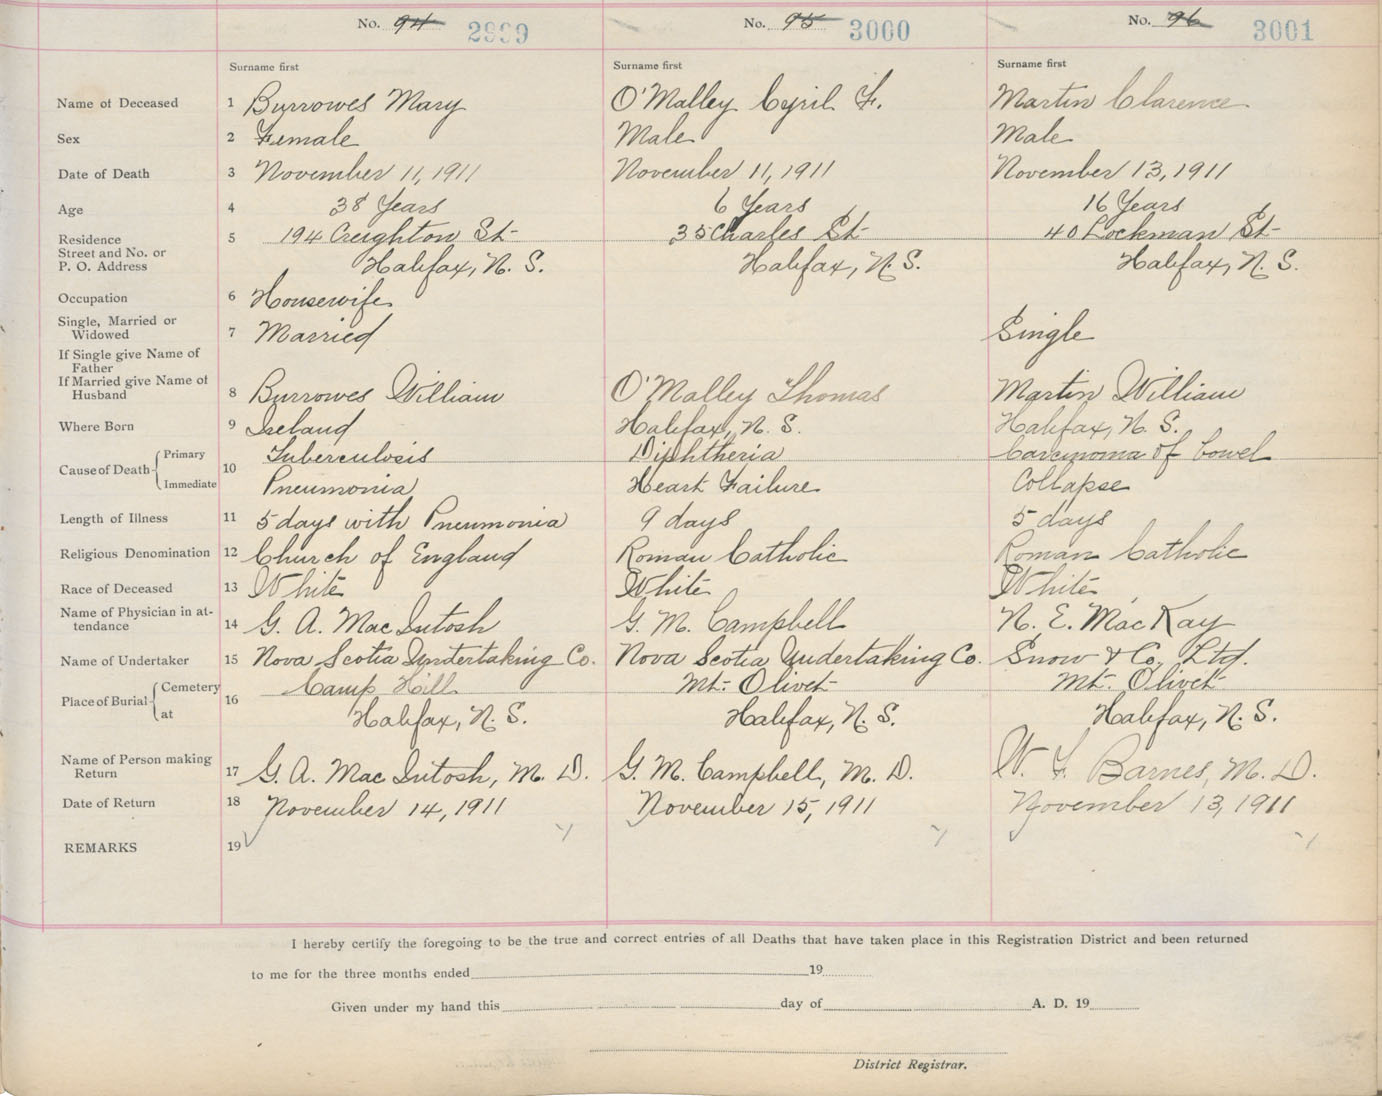 No. 94 2999 No. 95 3000 No. 96 3001
Surname first Surname first Surname first
Name of Deceased 1 Burrowes Mary O'Malley Cyril F. Martin Clarence
Sex 2 Female Male Male
Date of Death 3 November 11, 1911 November 11, 1911 November 13, 1911
Age 4 38 Years 6 Years 16 Years
Residence 5 194 Creighton St 35 Charles St 40 Lockman St
Street and No. or
P. O. Address Halifax, N. S. Halifax, N. S. Halifax, N. S.
Occupation 6 Housewife
Single, Married or
Widowed 7 Married Single
If Single give Name of
Father
If Married give Name of
Husband 8 Burrowes William O'Malley Thomas Martin William
Where Born 9 Ireland Halifax, N. S. Halifax, N. S.
Cause of Death 10 Primary Tuberculosis Diphtheria Carcinoma of bowel
Immediate Pneumonia Heart Failure Collapse
Length of Illness 11 5 days with Pneumonia 9 days 5 days
Religious Denomination 12 Church of England Roman Catholic Roman Catholic
Race of Deceased 13 White White White
Name of Physician in at-
tendance 14 G. A. MacIntosh G. M. Campbell N. E. MacKay
Name of Undertaker 15 Nova Scotia Undertaking Co. Nova Scotia Undertaking Co. Snow & Co. Ltd.
Place of Burial 16 Cemetery Camp Hill Mt. Olivet Mt. Olivet
at Halifax, N. S. Halifax, N. S. Halifax, N. S.
Name of Person making
Return 17 G. A. MacIntosh, M. D. G. M. Campbell, M. D. W. F. Barnes, M. D.
Date of Return 18 November 14, 1911 November 15, 1911 November 13, 1911
REMARKS 19
I hereby certify the foregoing to be the true and correct entries of all Deaths that have taken place in this Registration District and been returned
to me for the three months ended 19
Given under my hand this day of A. D. 19
District Registrar.